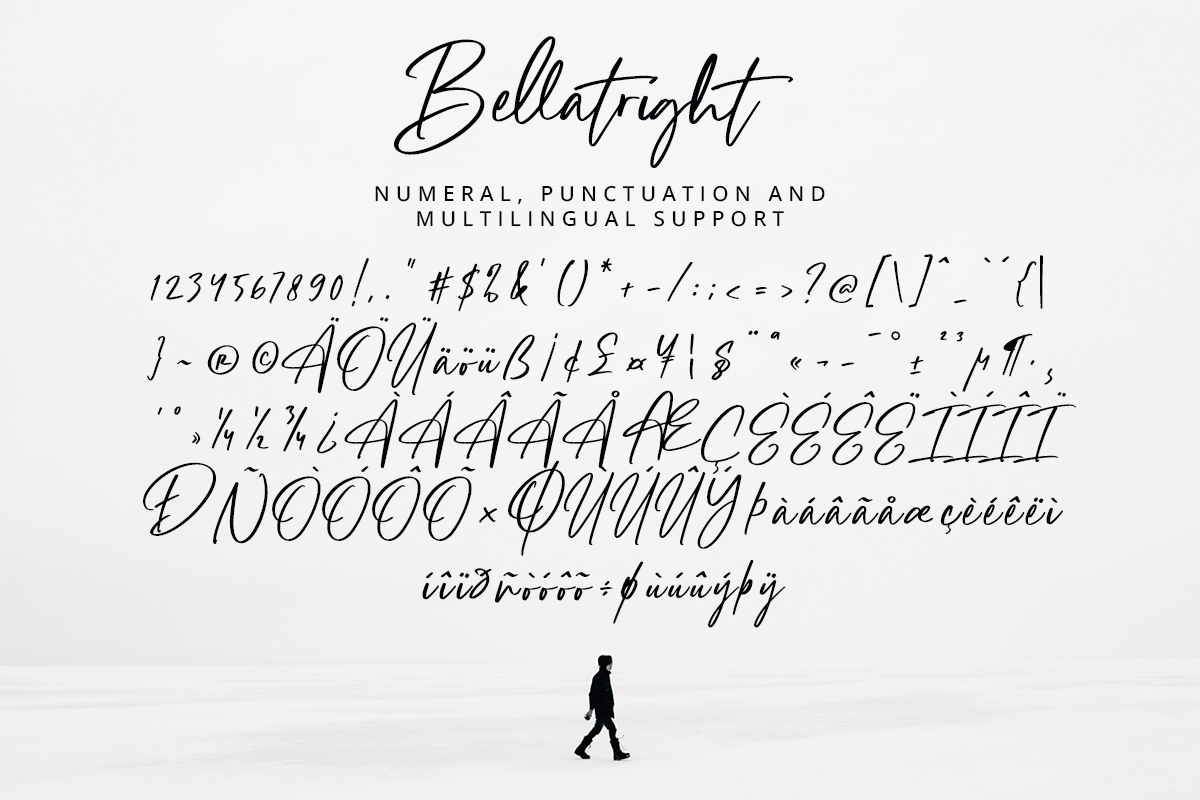 Bellatright
NUMERAL, PUNCTUATION AND
MULTILINGUAL SUPPORT
1234567890!,."#$%&'()*+-/:;<=>?@[\]^_`´{|
}~®©ÄÖÜäöüß¡¢£¤¥¦§¨ª«¬-¯°±²³µ¶·¸
'º»¼½¾¿ÀÁÂÃÅÆÇÈÉÊËÌÍÎÏ
ÐÑÒÓÔÕ×ØÙÚÛÝÞàáâãåæçèéêëì
íîïðñòóôõ÷øùúûýþÿ